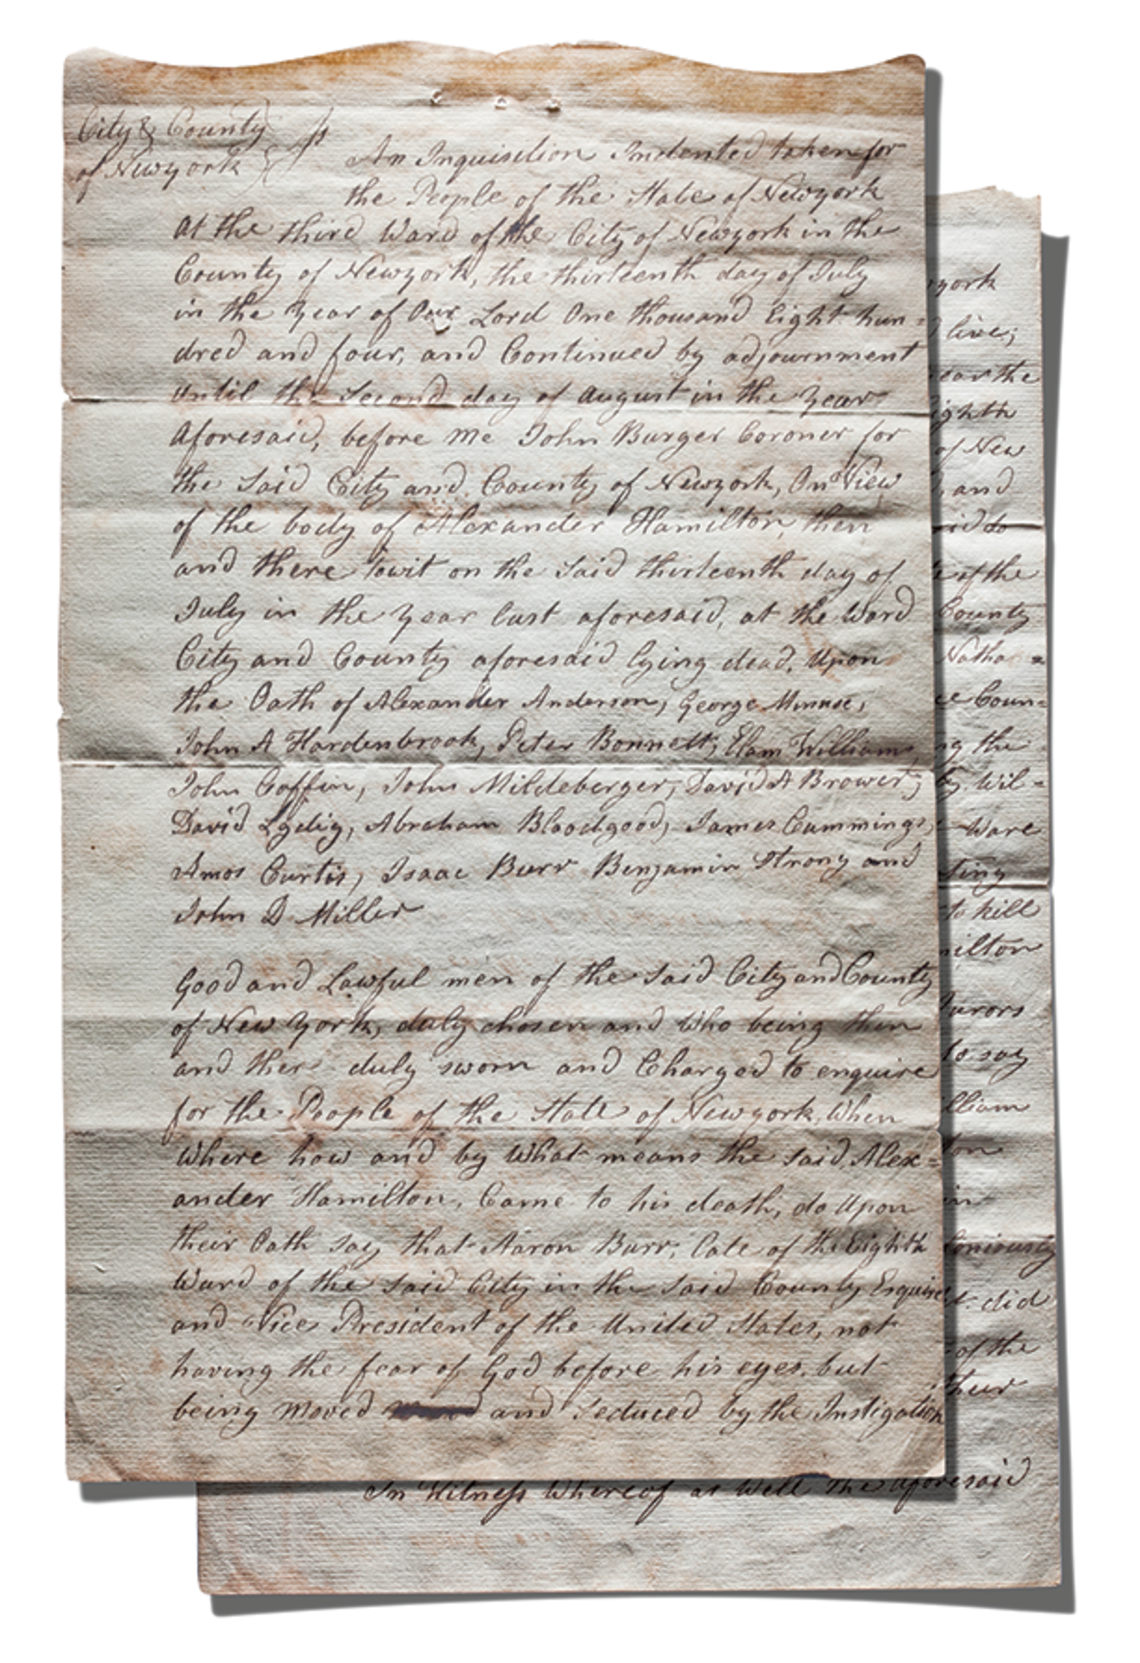 City & County
of Newyork } ss
An Inquisition Indented taken for
the People of the State of Newyork
at the third Ward of the City of Newyork in the
County of Newyork, the thirteenth day of July
in the Year of Our Lord One thousand Eight hun=
dred and four, and Continued by adjournment
until the Second day of August in the Year
Aforesaid, before me John Burger Coroner for
the Said City and County of Newyork, On View
of the body of Alexander Hamilton, then
and there towit on the Said thirteenth day of
July in the Year last aforesaid, at the Ward
City and County aforesaid lying dead, Upon
the Oath of Alexander Anderson, George Minuse,
John A Hardenbrook, Peter Bonnett, Elam Williams,
John Coffin, John Mildeberger, David A Brower,
David Lydig, Abraham Bloodgood, James Cummings,
Amos Curtis, Isaac Burr Benjamin Strong and
John D Miller
Good and Lawful men of the Said City and County
of New York, duly chosen and who being then
and there duly sworn and Charged to enquire
for the People of the State of Newyork, When
Where how and by What means the said Alex=
ander Hamilton, Came to his death, do Upon
their Oath say that Aaron Burr, late of the Eighth
Ward of the said City in the Said County Esquire
and Vice President of the United States, not
having the fear of God before his eyes, but
being moved and Seduced by the Instigation
york
live;
near the
ighth
of New
and
id do
of the
County
Natha=
Coun=
the
Wil=
Ware
ting
to kill
ilton
Jurors
to say
lliam
ton
in
loniously
did
of the
their
In Witness Whereof as Well the aforesaid